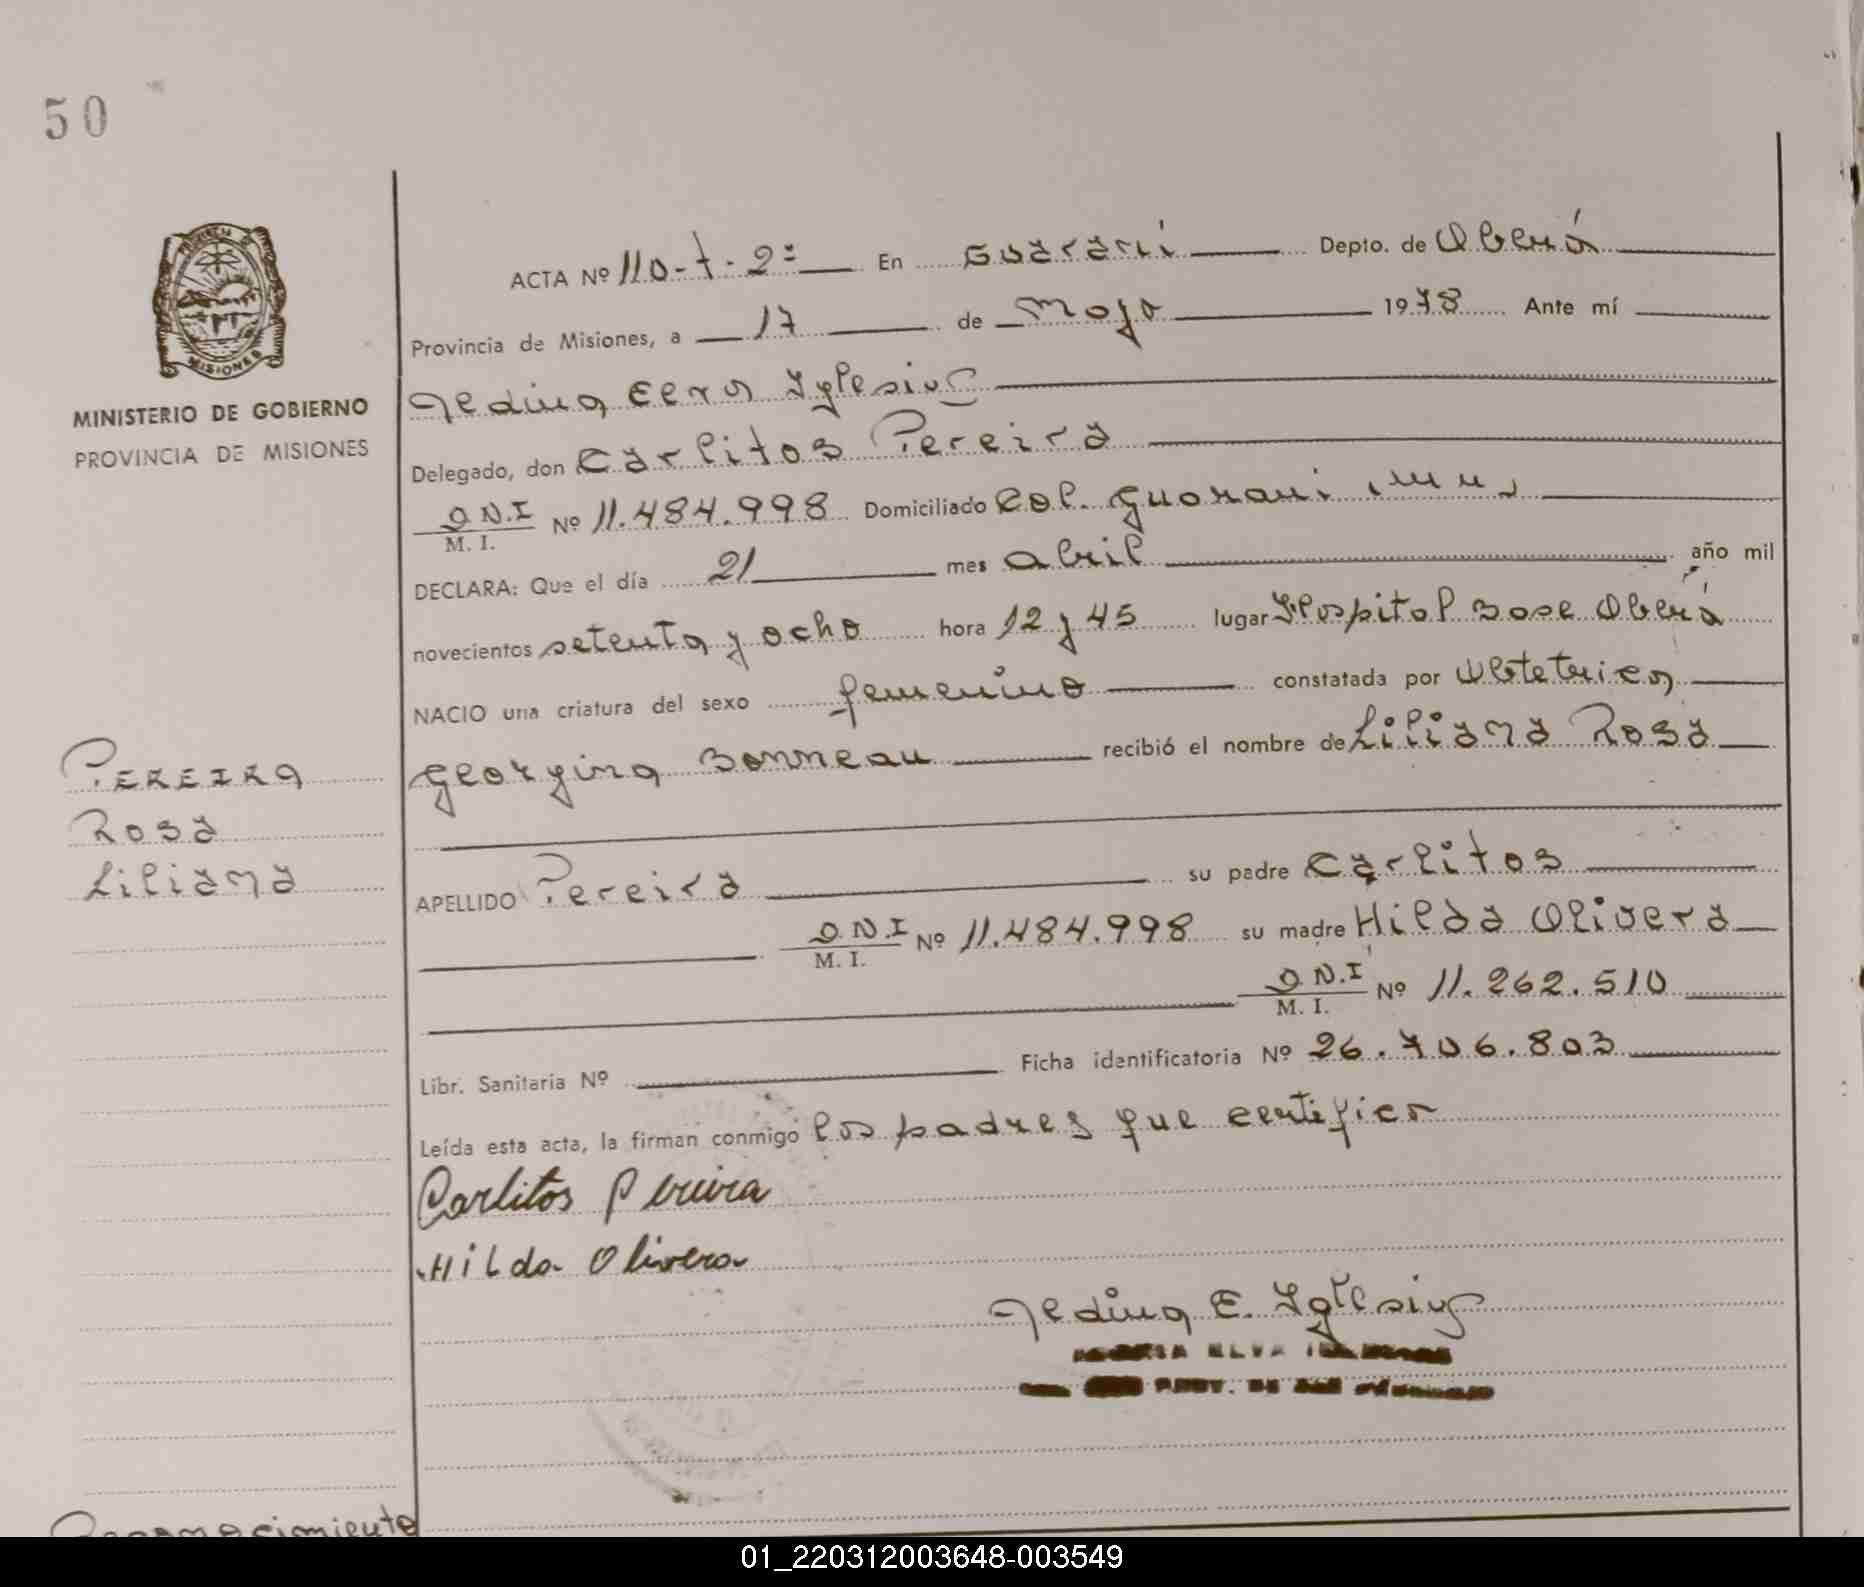 50
PROVINCIA DE
MISIONES
MINISTERIO DE GOBIERNO
PROVINCIA DE MISIONES
ACTA Nº 110-t-2ª En Guarani Depto. de Oberá
Provincia de Misiones, a 17 de Mayo 1978 Ante mí
Iglesias
Delegado, don Carlitos Pereira
D.N.I / M. I. Nº 11.484.998 Domiciliado Col. Guarani
DECLARA: Que el día 21 mes abril año mil
novecientos setenta y ocho hora 12 y 45 lugar Hospital Zose Oberá
NACIO una criatura del sexo femenino constatada por Obtetrica
Georgina Bonneau recibió el nombre de Liliana Rosa
APELLIDO Pereira su padre Carlitos
D.N.I / M. I. Nº 11.484.998 su madre Hilda Olivera
D.N.I / M. I. Nº 11.262.510
Libr. Sanitaria Nº Ficha identificatoria Nº 26.706.803
Leída esta acta, la firman conmigo los padres que certifico
Carlitos Pereira
Hilda Olivera
E. Iglesias
ELVA
PEREIRA
Rosa
Liliana
Reconocimiento
01_220312003648-003549